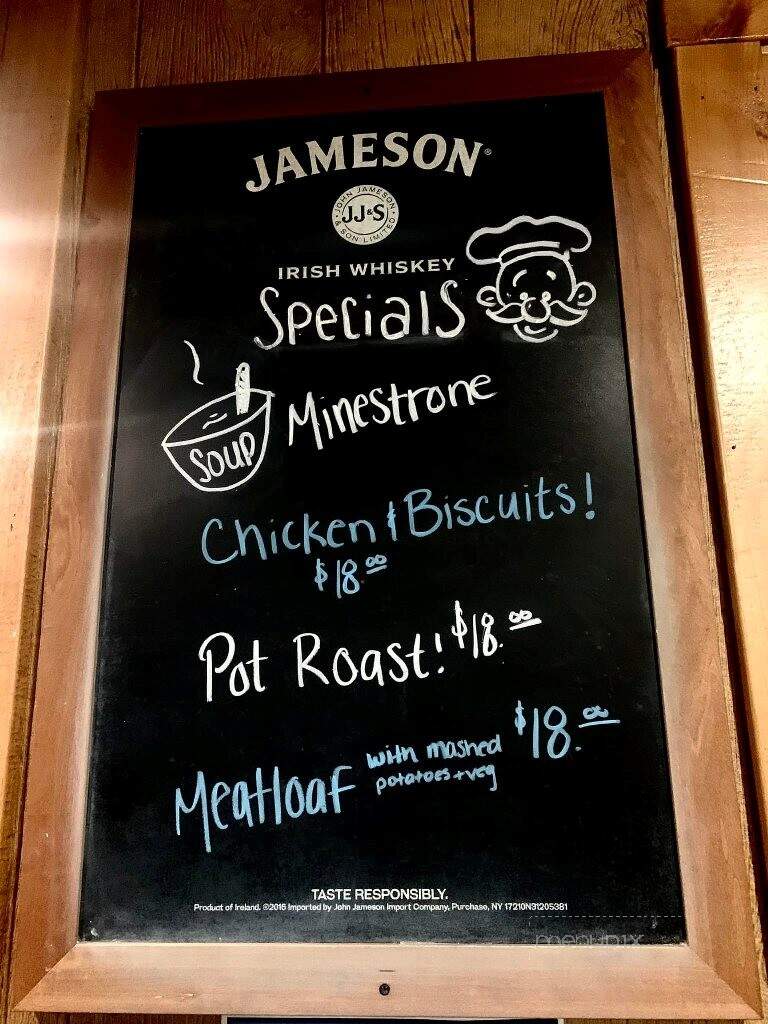 JAMESON®
JOHN JAMESON
JJ&S
& SON LIMITED
IRISH WHISKEY
Specials
Soup
Minestrone
Chicken & Biscuits!
$18.00
Pot Roast! $18.00
Meatloaf with mashed $18.00
potatoes + veg
TASTE RESPONSIBLY.
Product of Ireland. ©2016 Imported by John Jameson Import Company, Purchase, NY 17210N31205381
menupix